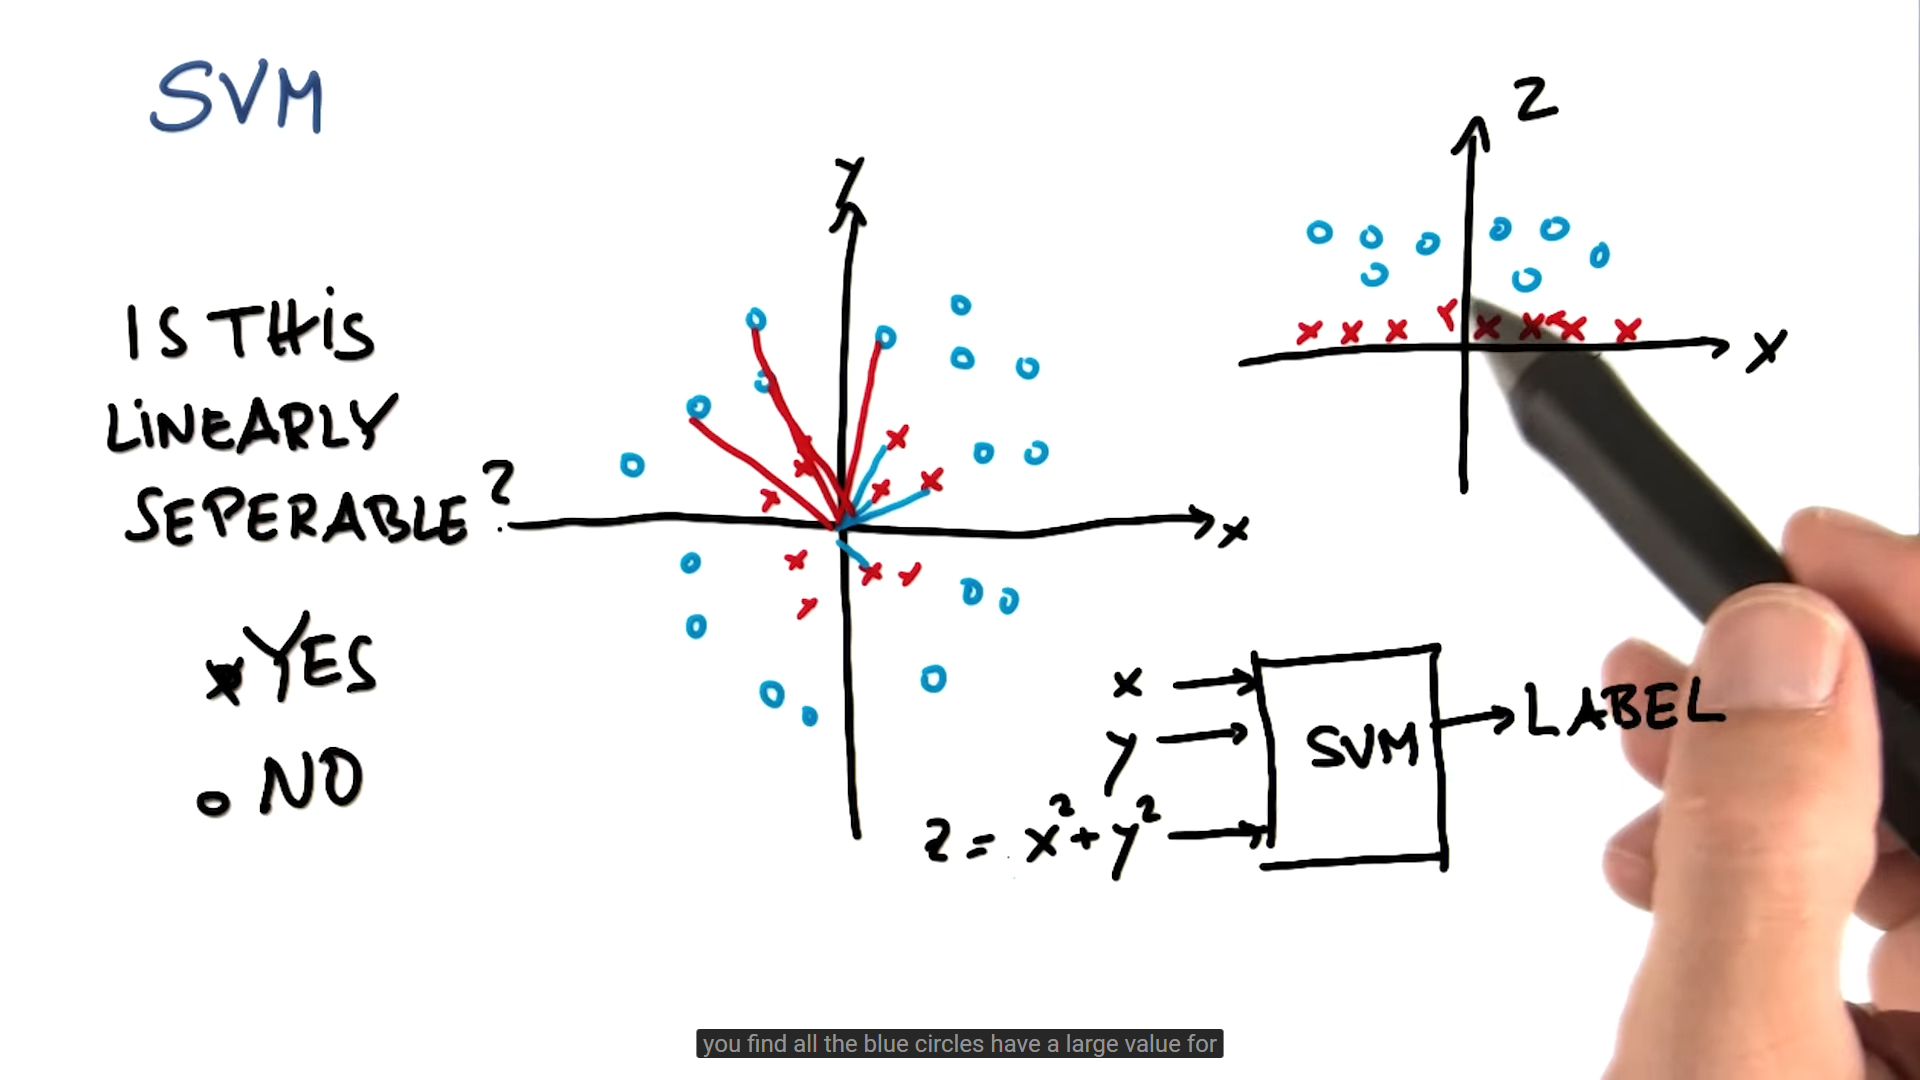 SVM
IS THIS
LINEARLY
SEPERABLE?
YES
NO
y
x
z
x
x
y
z = x²+y²
SVM
LABEL
you find all the blue circles have a large value for